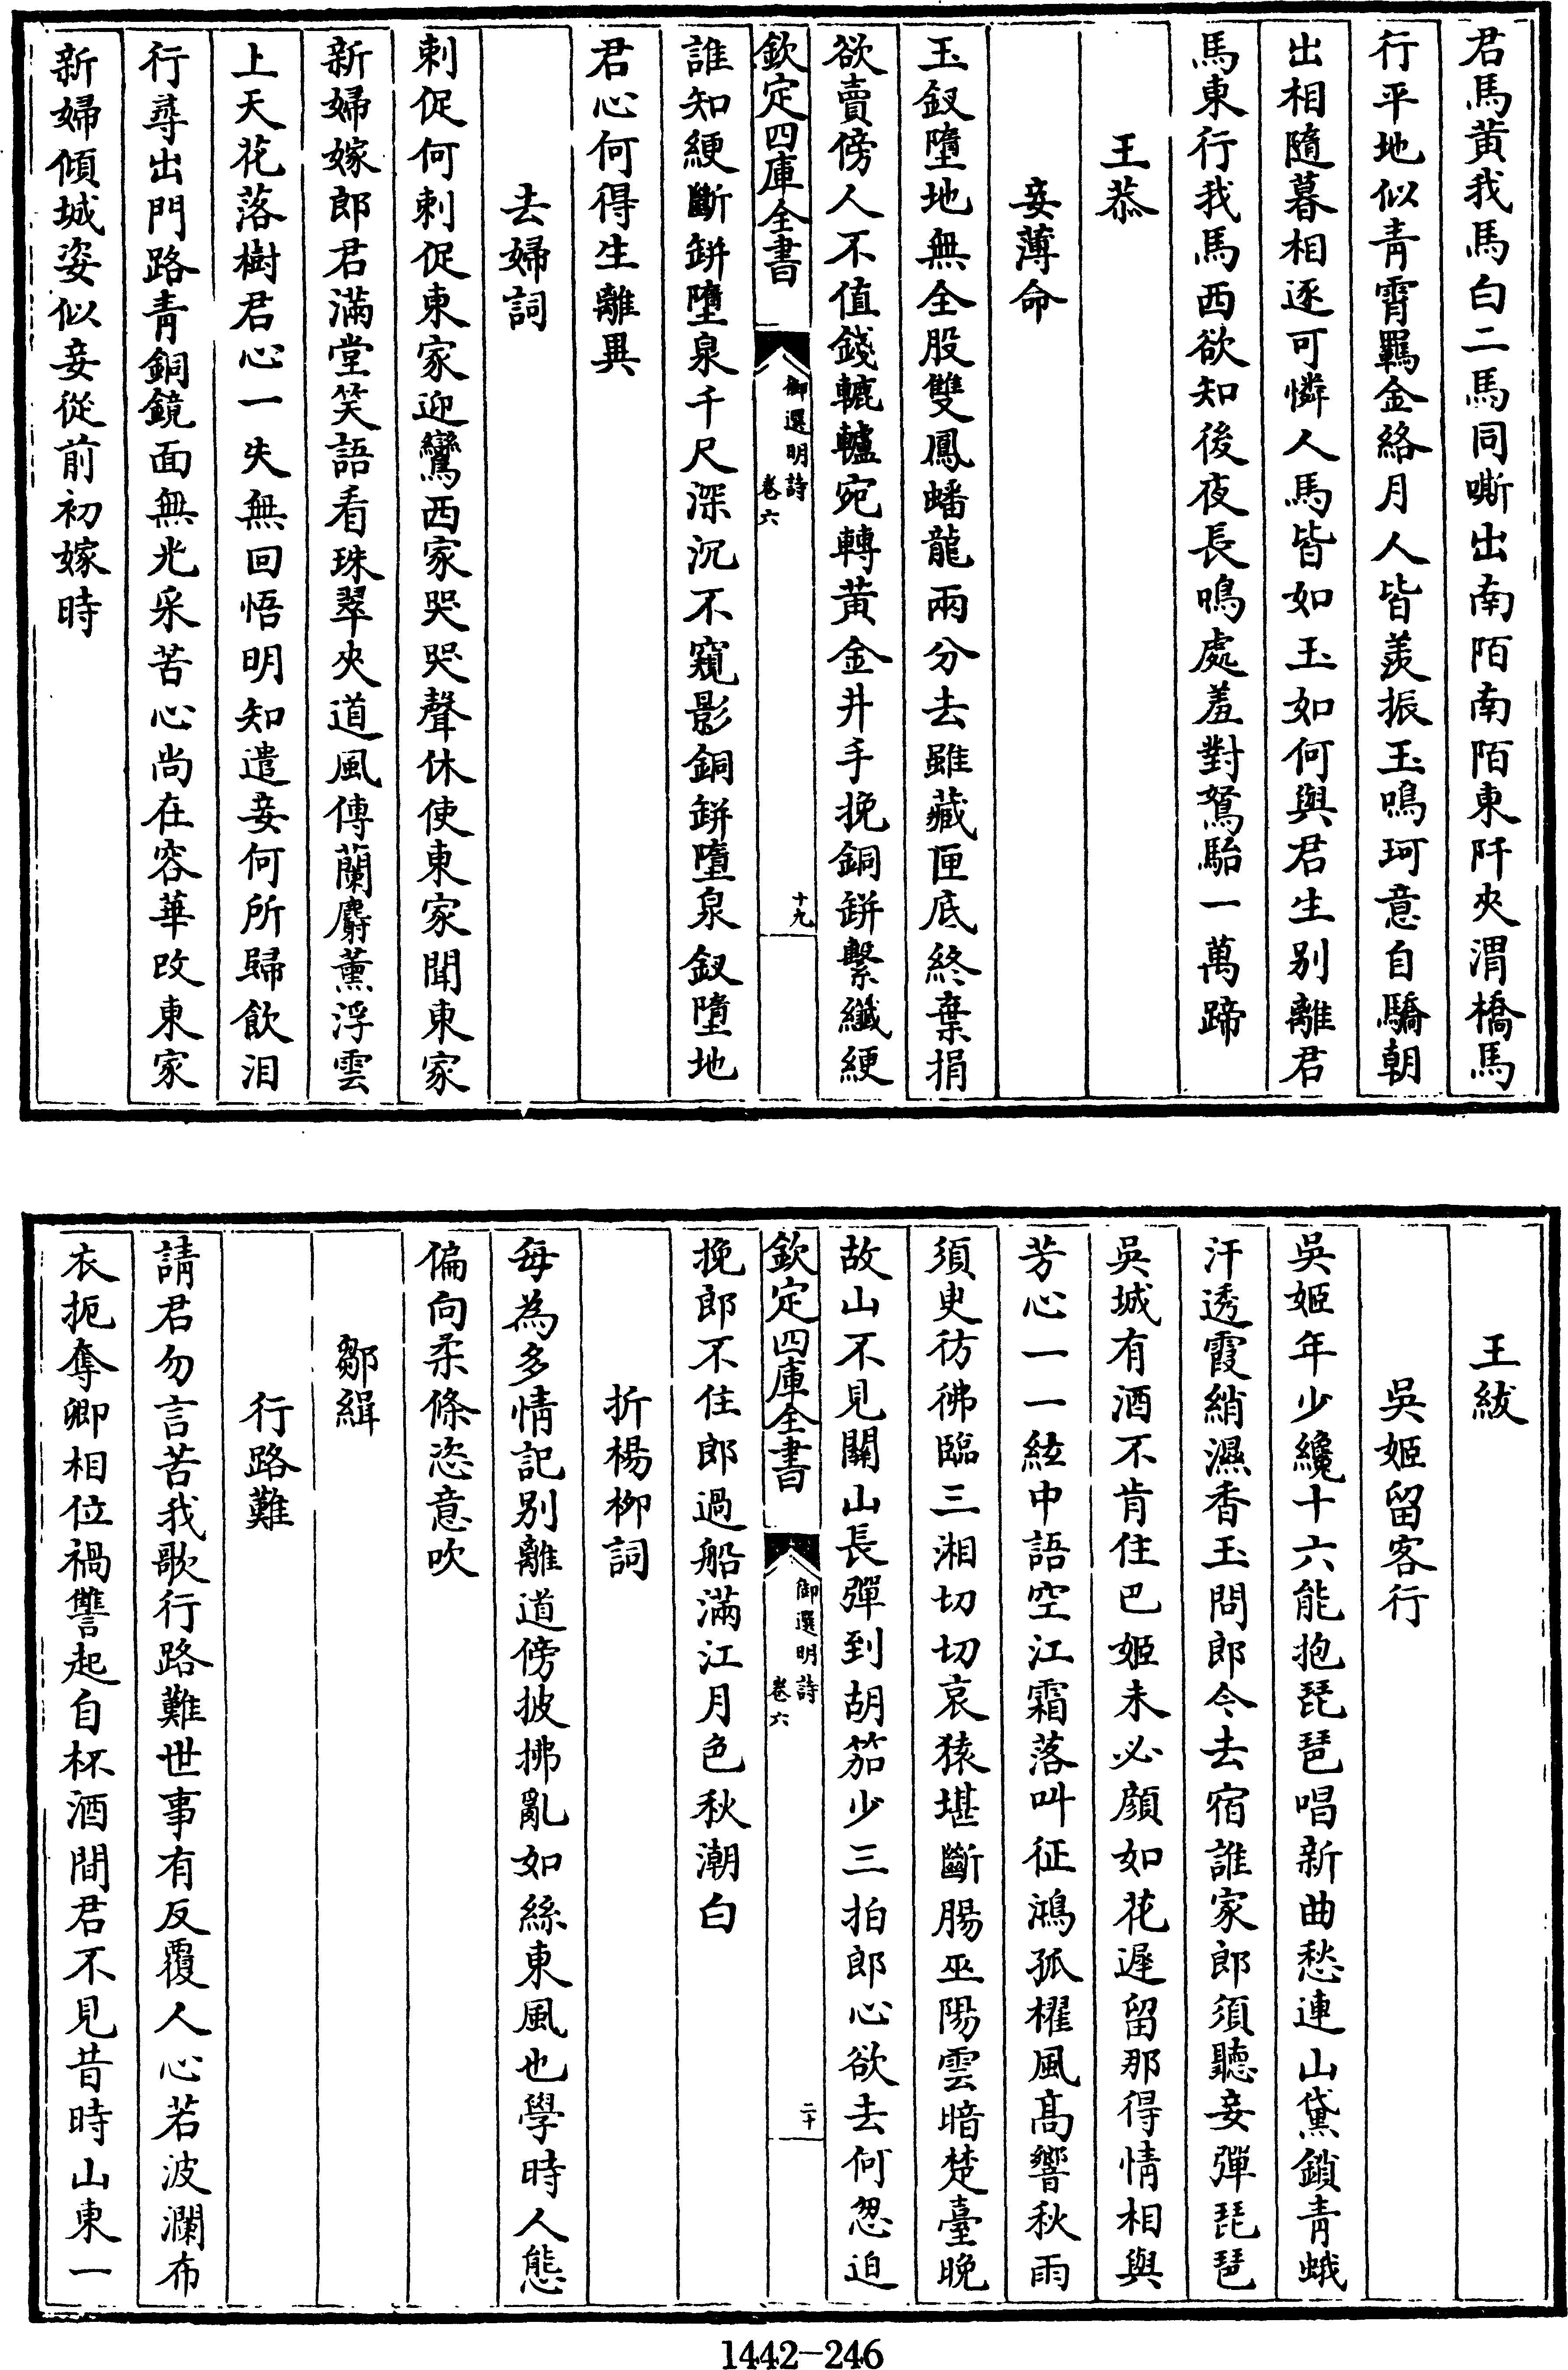 君馬黃我馬白二馬同嘶出南陌南陌東阡夾渭橋馬
行平地似青霄羈金絡月人皆羨振玉鳴珂意自驕朝
出相隨暮相逐可憐人馬皆如玉如何與君生别離君
馬東行我馬西欲知後夜長鳴處羞對駑駘一萬蹄
王恭
妾薄命
玉釵墮地無全股雙鳳蟠龍兩分去雖藏匣底終棄捐
欲賣傍人不值錢轆轤宛轉黃金井手挽銅缾繫纖綆
欽定四庫全書
御選明詩
卷六
十九
誰知綆斷缾墮泉千尺深沉不窺影銅缾墮泉釵墮地
君心何得生離異
去婦詞
刺促何刺促東家迎鸞西家哭哭聲休使東家聞東家
新婦嫁郎君滿堂笑語看珠翠夾道風傳蘭麝薰浮雲
上天花落樹君心一失無回悟明知遣妾何所歸飲泪
行尋出門路青銅鏡面無光采苦心尚在容華改東家
新婦傾城姿似妾從前初嫁時
王紱
吳姬留客行
吳姬年少纔十六能抱琵琶唱新曲愁連山黛鎖青蛾
汗透霞綃濕香玉問郎今去宿誰家郎須聽妾彈琵琶
吳城有酒不肯住巴姬未必顔如花遲留那得情相與
芳心一一絃中語空江霜落叫征鴻孤櫂風髙響秋雨
須臾彷彿臨三湘切切哀猿堪斷腸巫陽雲暗楚臺晚
故山不見關山長彈到胡笳少三拍郎心欲去何怱迫
欽定四庫全書
御選明詩
卷六
二十
挽郎不住郎過船滿江月色秋潮白
折楊柳詞
每為多情記别離道傍披拂亂如絲東風也學時人態
偏向柔條恣意吹
鄒緝
行路難
請君勿言苦我歌行路難世事有反覆人心若波瀾布
衣扼奪卿相位禍讐起自杯酒間君不見昔時山東一
1442-246